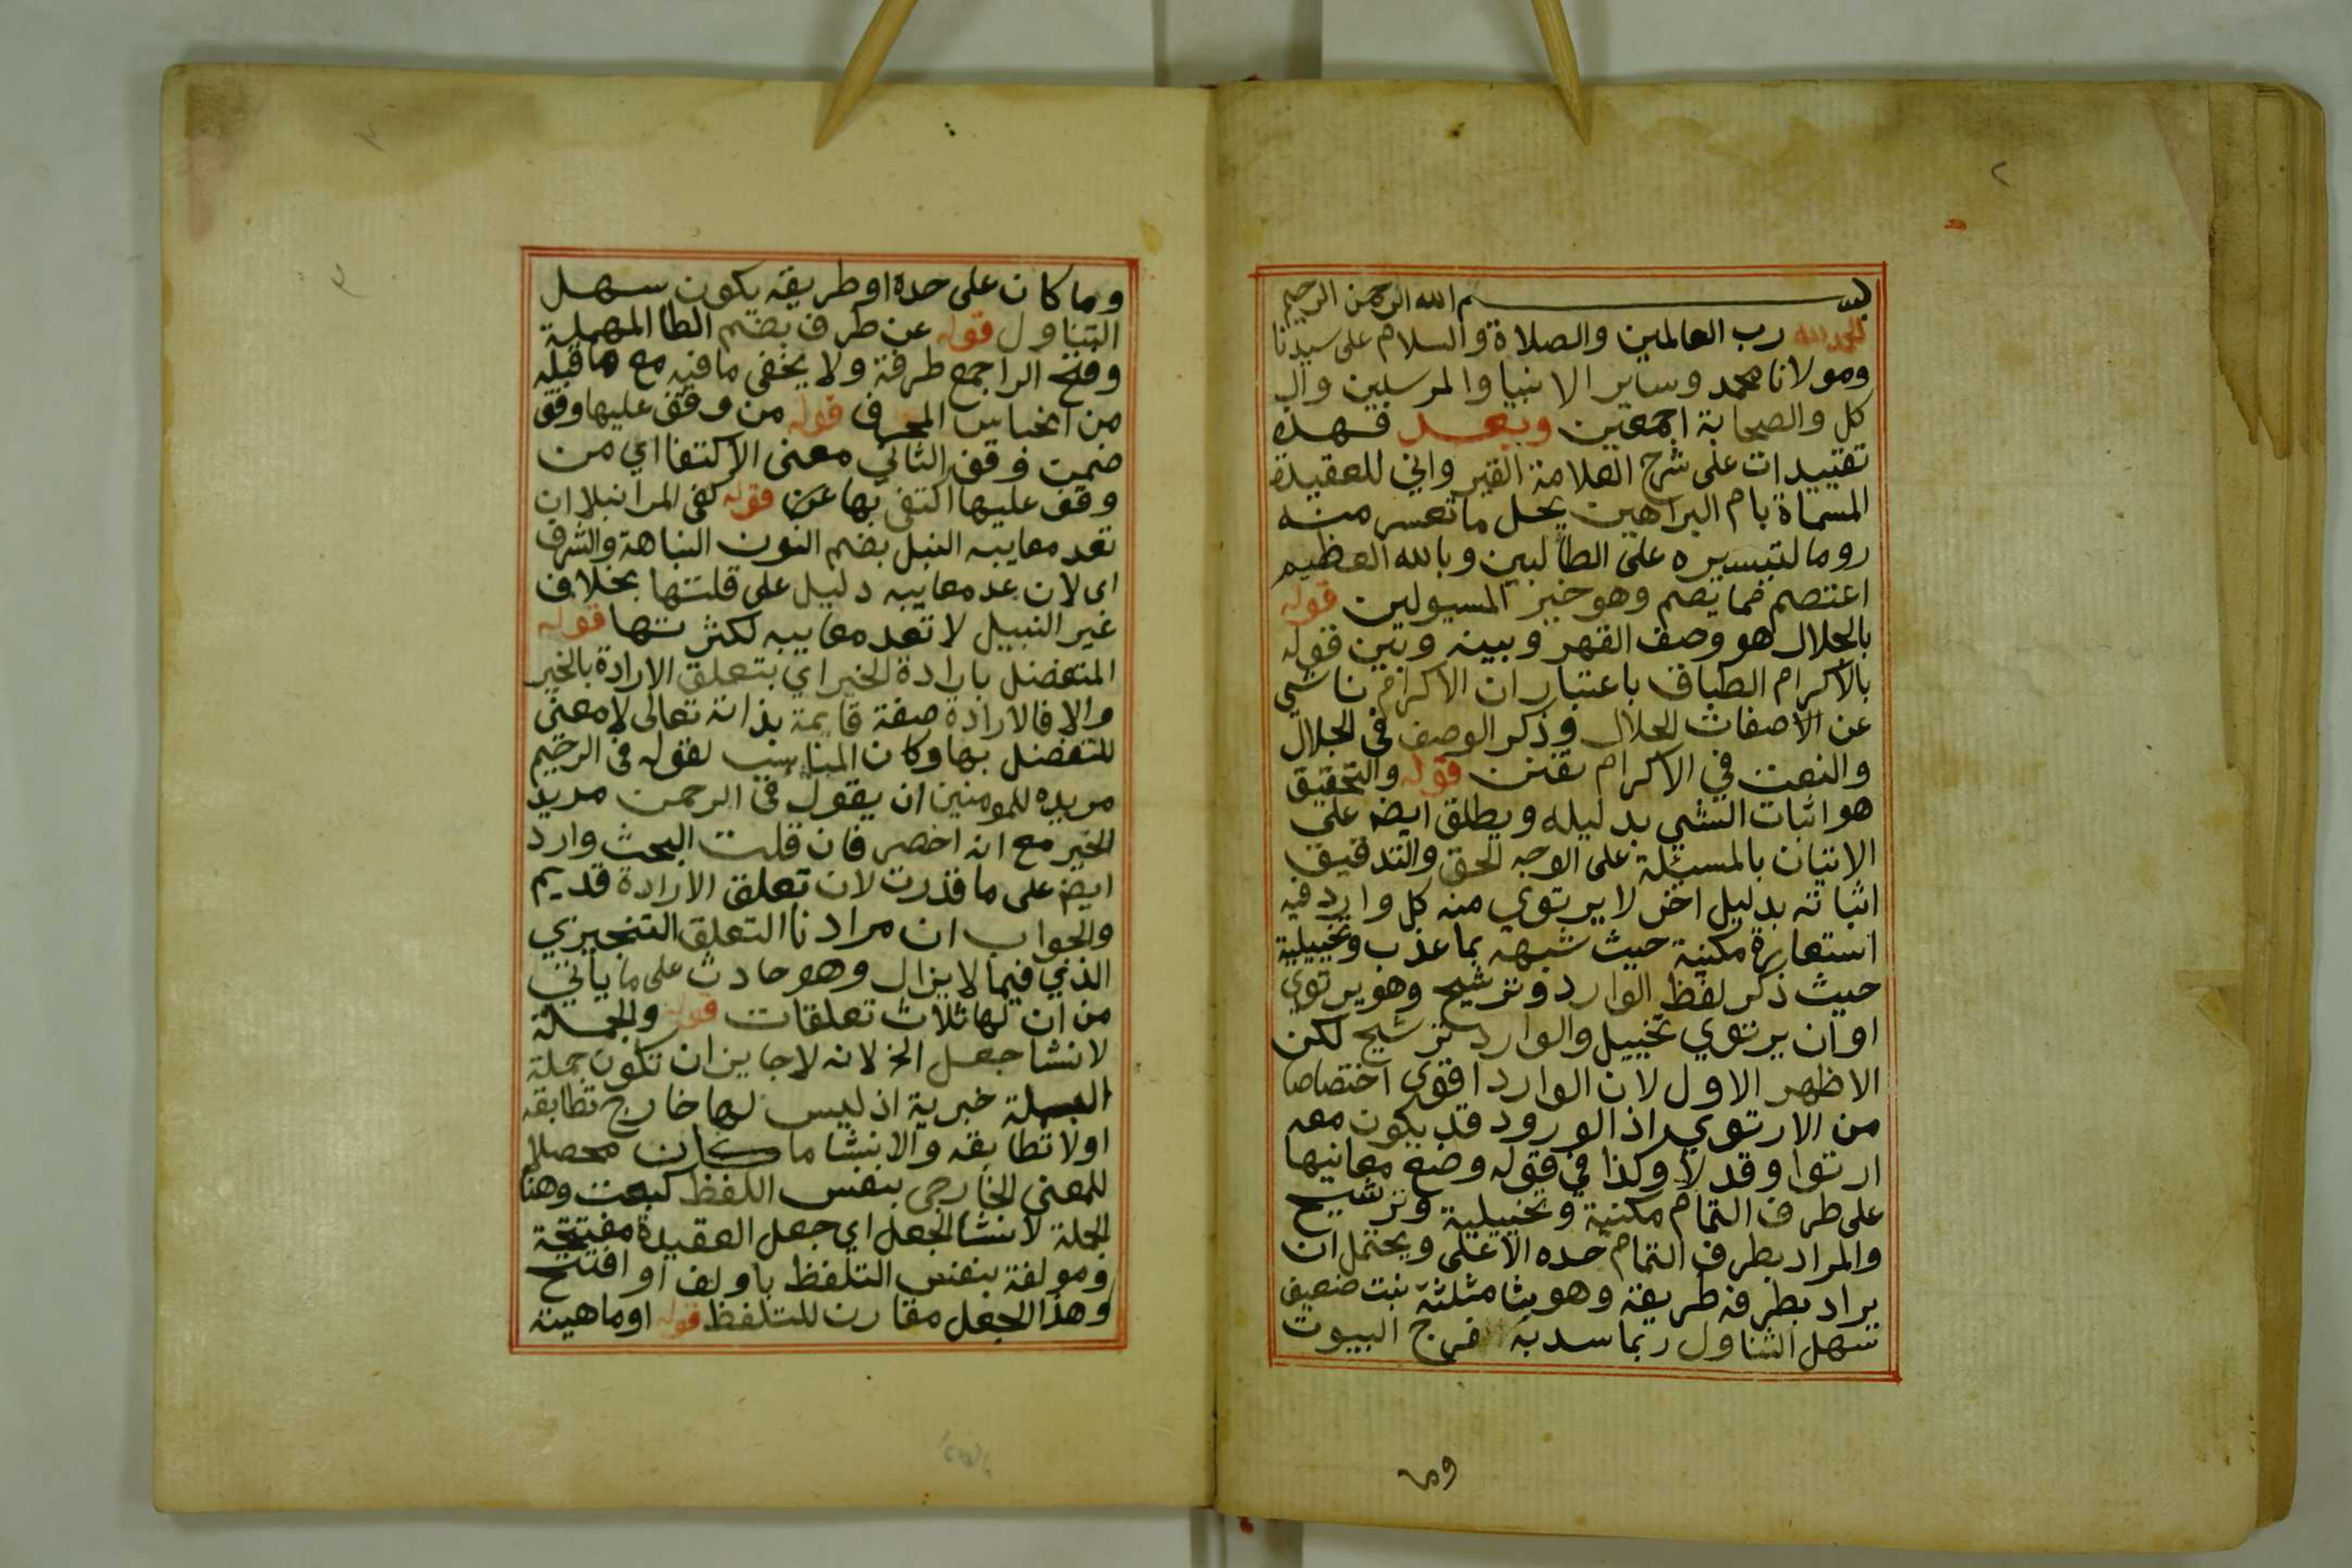 بسم الله الرحمن الرحيم
الحمد لله رب العالمين والصلاة والسلام على سيدنا
ومولانا محمد وساير الانبيا والمرسلين وال
كل والصحابة اجمعين وبعد فهذه
تقييدات على شرح العلامة القيرواني للعقيدة
المسماة بام البراهين يحل ما تعسر منه
روما لتيسيره على الطالبين وبالله العظيم
اعتصم فما يصم وهو خير المسيولين قوله
بالجلال هو وصف القهر وبينه وبين قوله
بالاكرام الطباق باعتبار ان الاكرام ناشي
عن الاصفات الجلال وذكر الوصف في الجلال
والنعت في الاكرام تفنن قوله والتحقيق
هو اثبات الشي بدليله ويطلق ايضا على
الاتيان بالمسئلة على الوجه الحق والتدقيق
اثباته بدليل اخر لا يرتوي منه كل وارد فيه
استعارة مكنية حيث شبهه بما عذب وتخييلية
حيث ذكر لفظ الوارد وترشيح وهو يرتوي
او ان يرتوي تخييل والوارد ترشيح لكن
الاظهر الاول لان الوارد اقوى اختصاصا
من الارتوي اذ الورود قد يكون معه
ارتوا وقد لا وكذا في قوله وضع معانيها
على طرف التمام مكنية وتخييلية وترشيح
والمراد بطرف التمام حده الاعلى ويحتمل ان
يراد بطرفه طريقة وهو بثا مثلثة نبت ضعيف
سهل التناول ربما سد به فرج البيوت
وما
وما كان على حده او طريقه يكون سهل
التناول قوله عن طرف بضم الطا المهملة
وفتح الرا جمع طرفة ولا يخفى ما فيه مع ما قبله
من الجناس المحرف قوله من وقف عليها وقف
ضمت وقف الثاني معنى الاكتفا اي من
وقف عليها اكتفى بها عن قوله كفى المرا نبلا ان
تعد معايبه النبل بضم النون النباهة والشرف
اى لان عد معايبه دليل على قلتها بخلاف
غير النبيل لا تعد معايبه لكثرتها قوله
المتفضل بارادة الخير اي بتعلق الارادة بالخير
والا فالارادة صفة قايمة بذاته تعالى لا معنى
للتفضل بها وكان المناسب لقوله في الرحيم
مريده للمومنين ان يقول في الرحمن مريد
الخير مع انه اخصر فان قلت البحث وارد
ايضا على ما قدرت لان تعلق الارادة قديم
والجواب ان مرادنا التعلق التنجيزي
الذي فيما لا يزال وهو حادث على ما ياتي
من ان لها ثلاث تعلقات قوله والجملة
لانشا جعل الخ لانه لا جايز ان تكون جملة
البسملة خبرية اذ ليس لها خارج تطابقه
او لا تطابقه والانشا ما كان محصلا
للمعنى الخارجي بنفس اللفظ كبعت وهنا
الجملة لانشا الجعل اي جعل العقيدة مفتتحة
ومولفة بنفس التلفظ باولف او افتتح
وهذا الجعل مقارن للتلفظ قوله او ماهيته